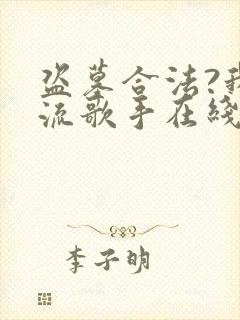 盗墓合法?我
流歌手在线
李子明